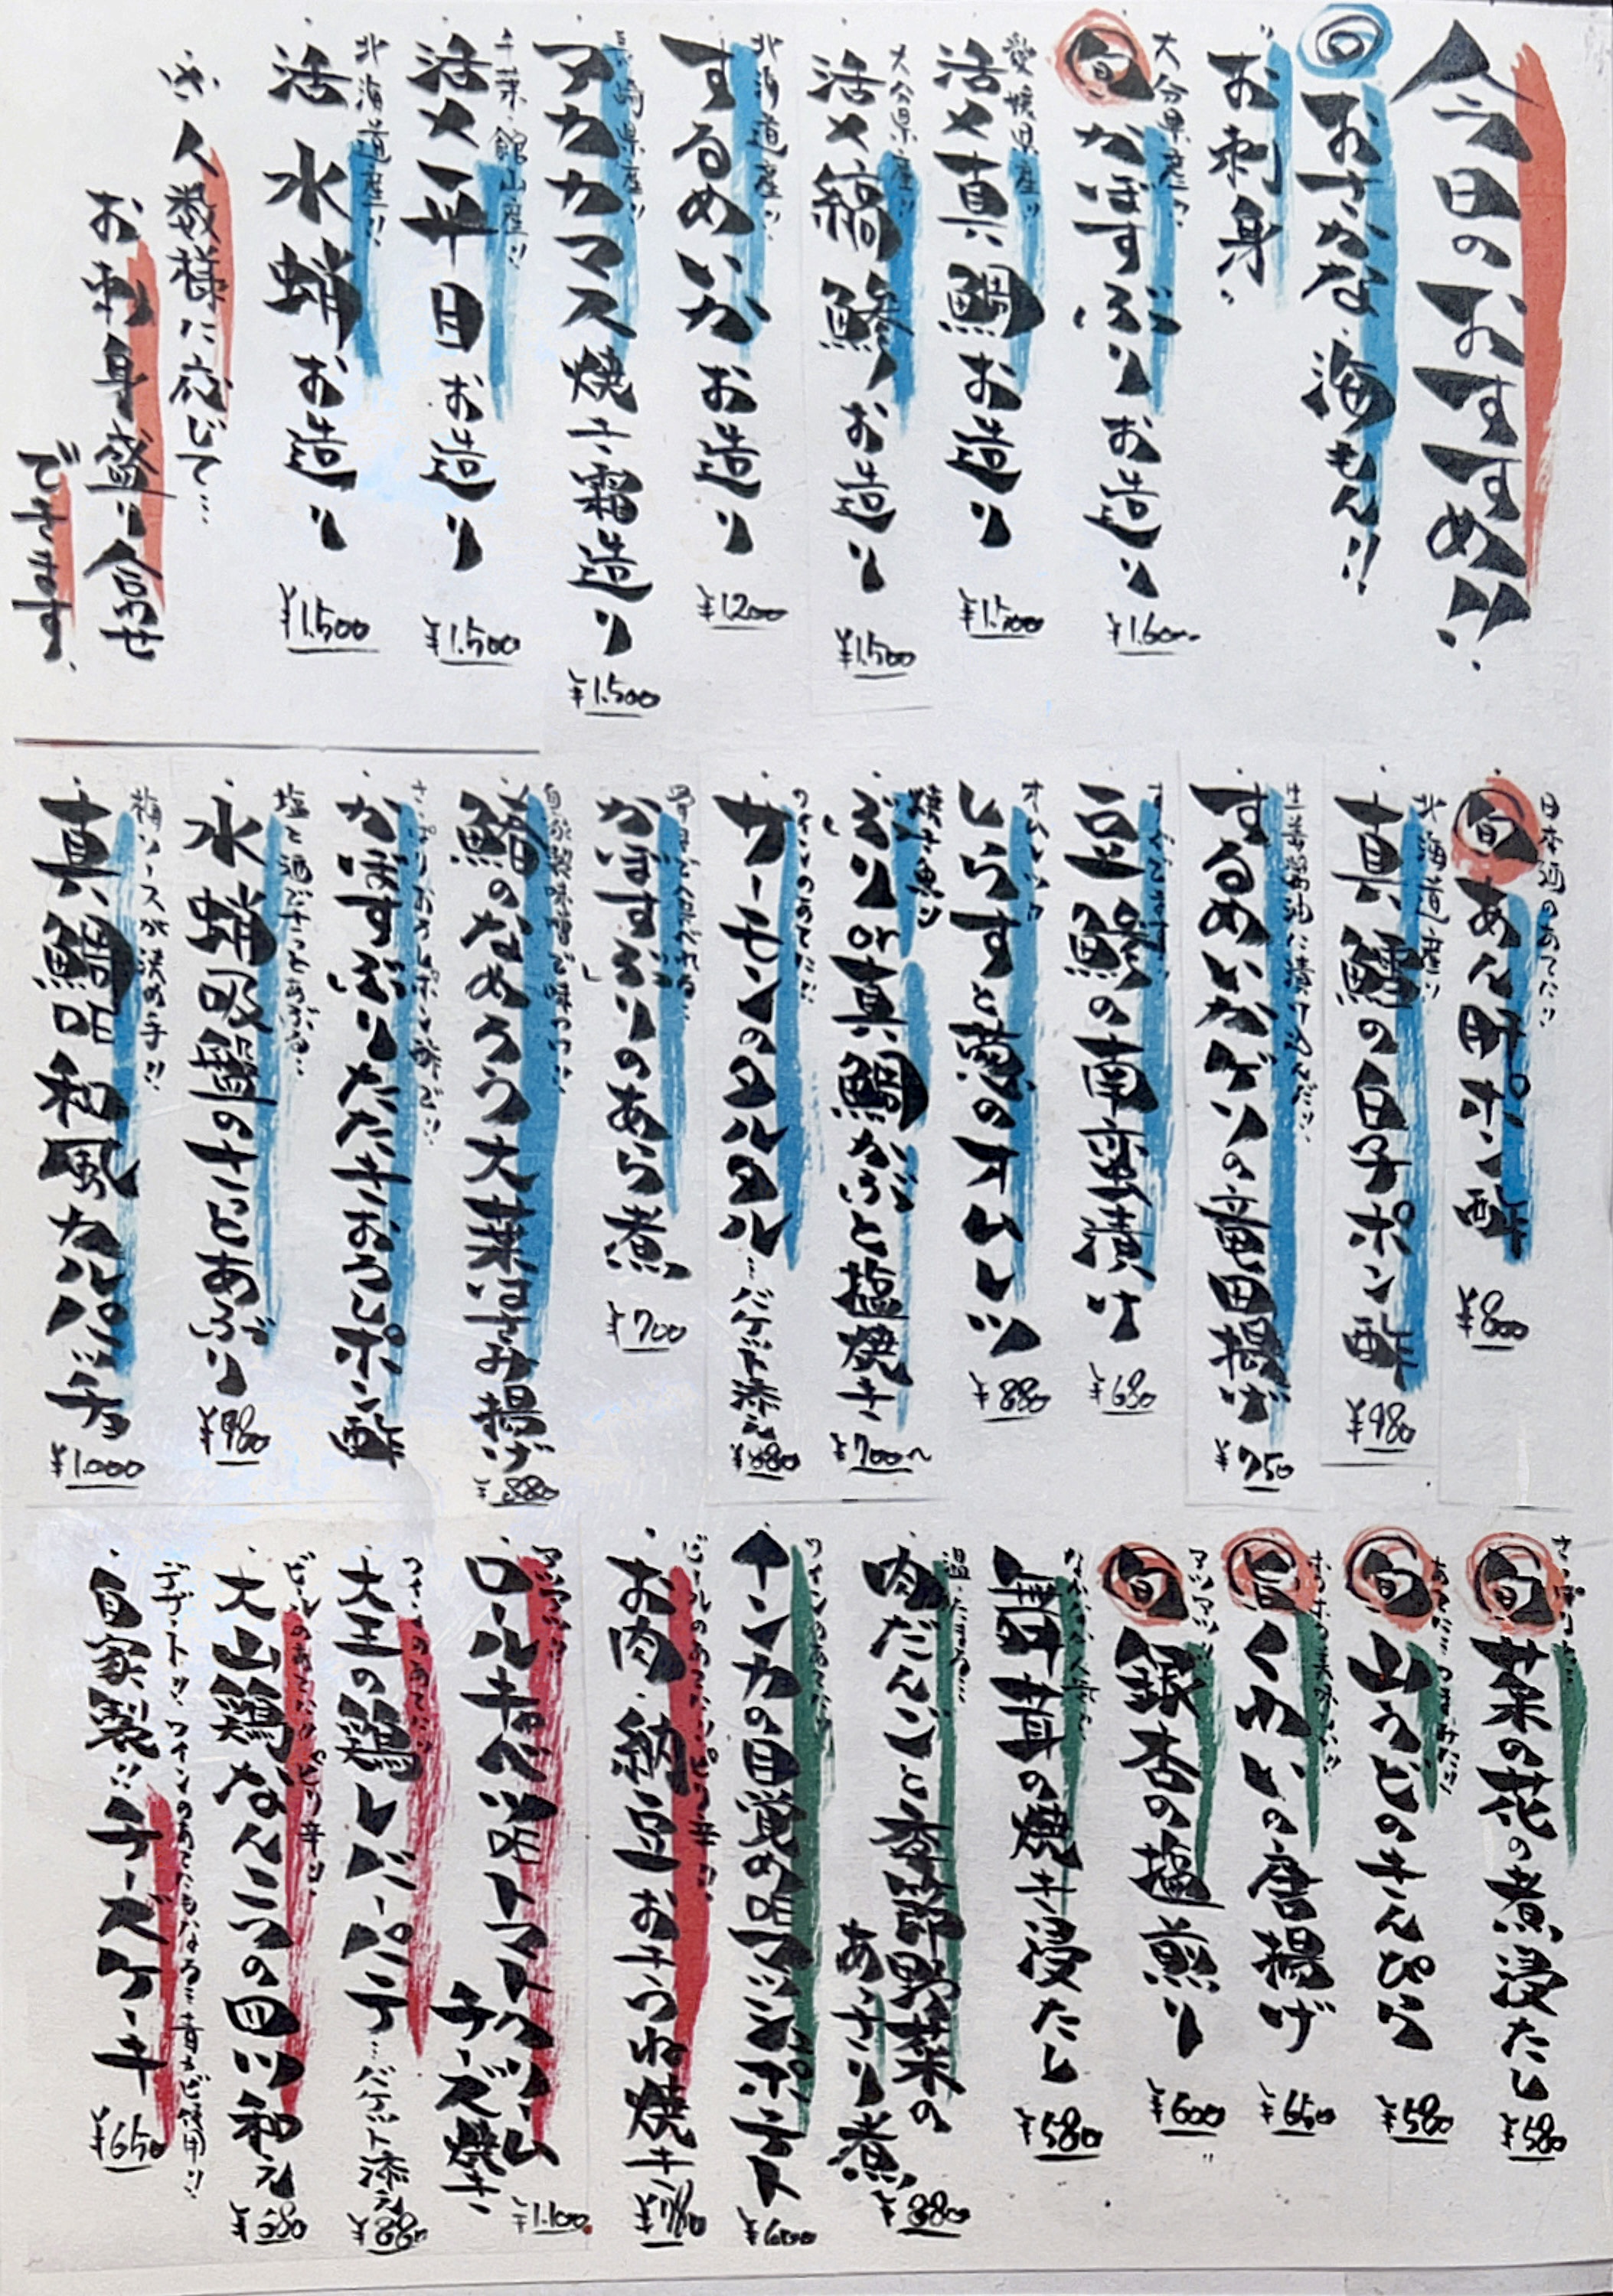 今日のおすすめ!!
◎おさかな・海もん!!
お刺身
大分県産!!
旬 かぼすぶりお造り ¥1.600
愛媛県産!!
活〆真鯛お造り ¥1.500
大分県産!!
活〆縞鯵お造り ¥1.500
北海道産!!
するめいかお造り ¥1200
長崎県産!!
アカカマス焼き霜造り ¥1.500
千葉・館山産!!
活〆平目お造り ¥1.500
北海道産!!
活水蛸お造り ¥1.500
人数様に応じて…
お刺身盛り合わせ
できます
日本酒のあてに!!
旬 あん肝ポン酢 ¥800
北海道産!!
真鱈の白子ポン酢 ¥980
生姜醤油に漬け込んだ!!
するめいかゲソの竜田揚げ ¥750
豆鯵の南蛮漬け ¥680
しらすと葱のオムレツ ¥880
焼き魚!!
ぶりor真鯛かぶと塩焼き ¥700〜
ワインのあてに!!
サーモンのタルタル…バケット添え ¥880
かぼすぶりのあら煮 ¥700
自家製味噌で味つけ!!
鯵のなめろう大葉はさみ揚げ ¥880
かぼすぶりたたきおろしポン酢
塩と酒でさっとあぶる!!
水蛸吸盤のさっとあぶり ¥980
梅ソースが決め手!!
真鯛昆和風カルパッチョ ¥1.000
さっぱりと!!
旬 菜の花の煮浸たし ¥580
旬 山うどのきんぴら ¥580
ホクホク美味しい!!
旨 くわいの唐揚げ ¥650
アツアツ!!
旬 銀杏の塩煎り ¥600
舞茸の焼き浸たし ¥580
肉だんごと季節野菜の
あっさり煮 ¥880
ワインのあてに!!
インカの目覚め昆マッシュポテト ¥600
ビールのあてに!!ピリ辛!!
お肉・納豆おきつね焼き ¥780
アツアツ!!
ロールキャベツ昆トマトクリーム
チーズ焼き ¥1.100
ワインのあてに!!
大王の鶏レバーパテ…バケット添え ¥880
ビールのあてに!!ピリ辛!!
大山鶏なんこつの四川和え ¥580
デザート!!ワインのあてにもなる…青かび使用!!
自家製!!チーズケーキ ¥650